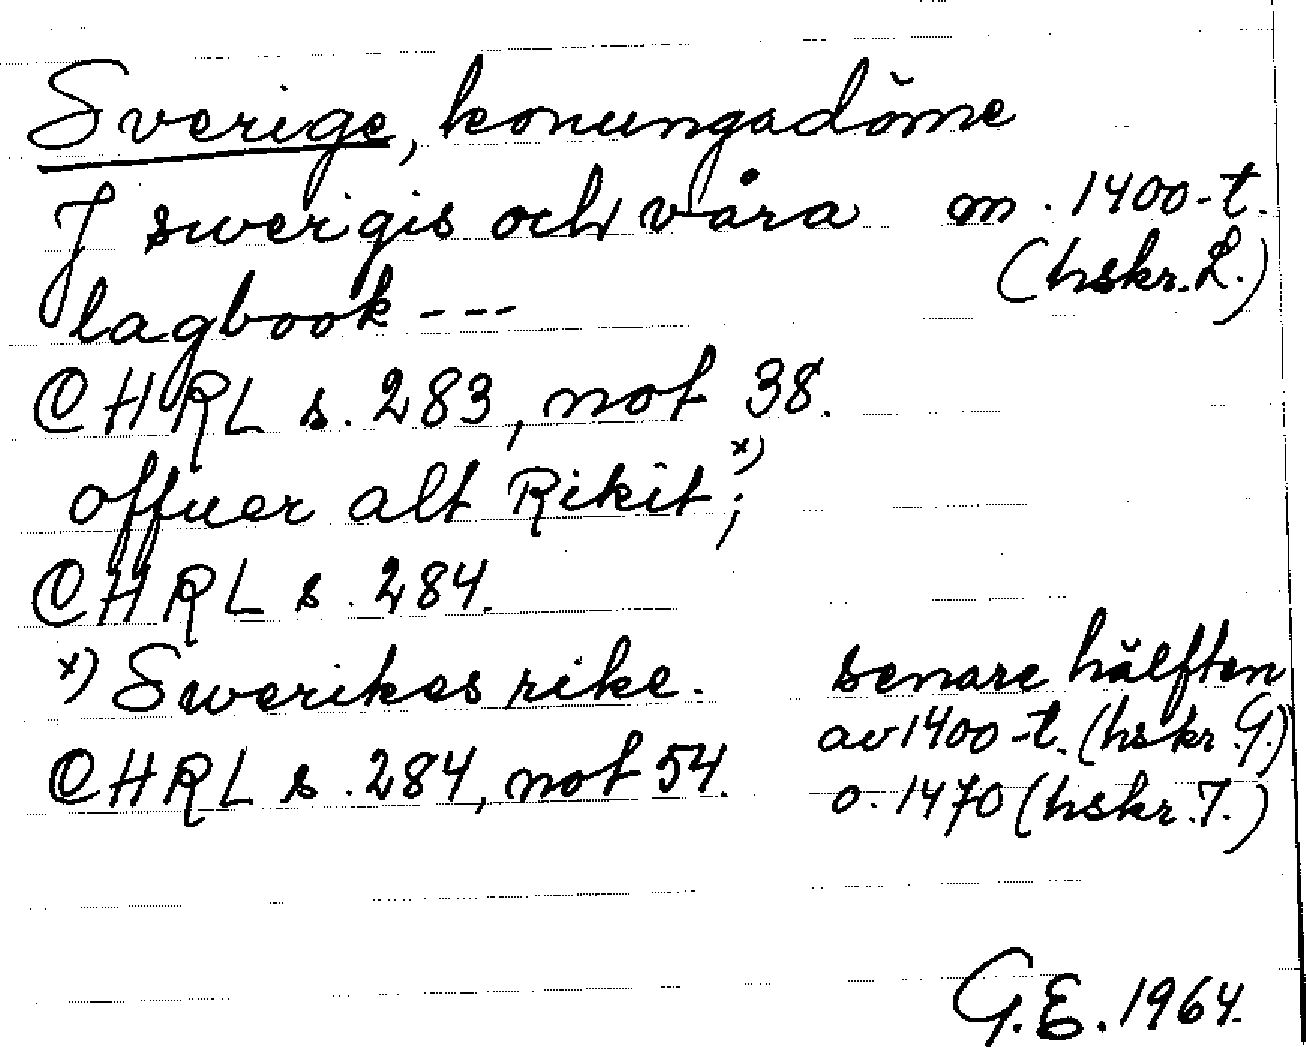 Sverige, konungadöme
J swerigis och våra m. 1400-t.
lagbook --- (hskr. L.)
CHRL s. 283, not 38.
offuer alt Rikit x);
CHRL s. 284.
x) Swerikes rike. senare hälften
av 1400-t. (hskr. G.)
CHRL s. 284, not 54. o. 1470 (hskr. T.)
G.E. 1964.